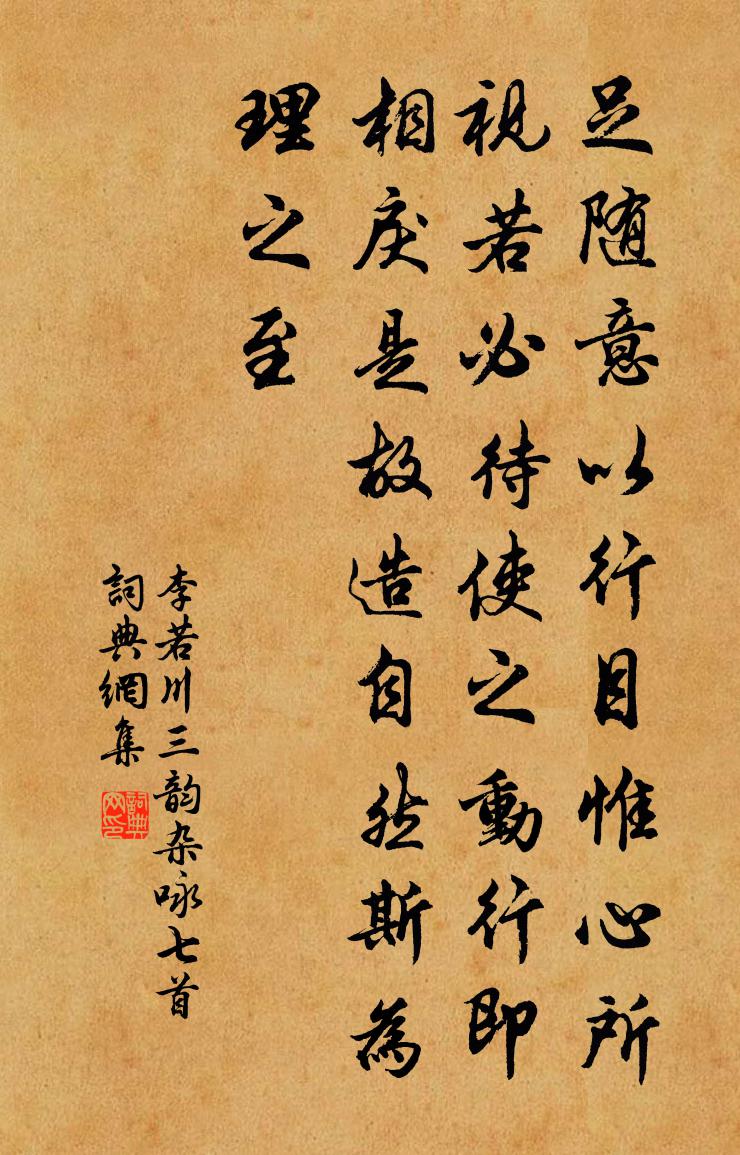 足随意以行目惟心所
視若必待使之動行即
相戾是故造自然斯為
理之至
李若川三韵杂咏七首
詞典網集
詞典网印